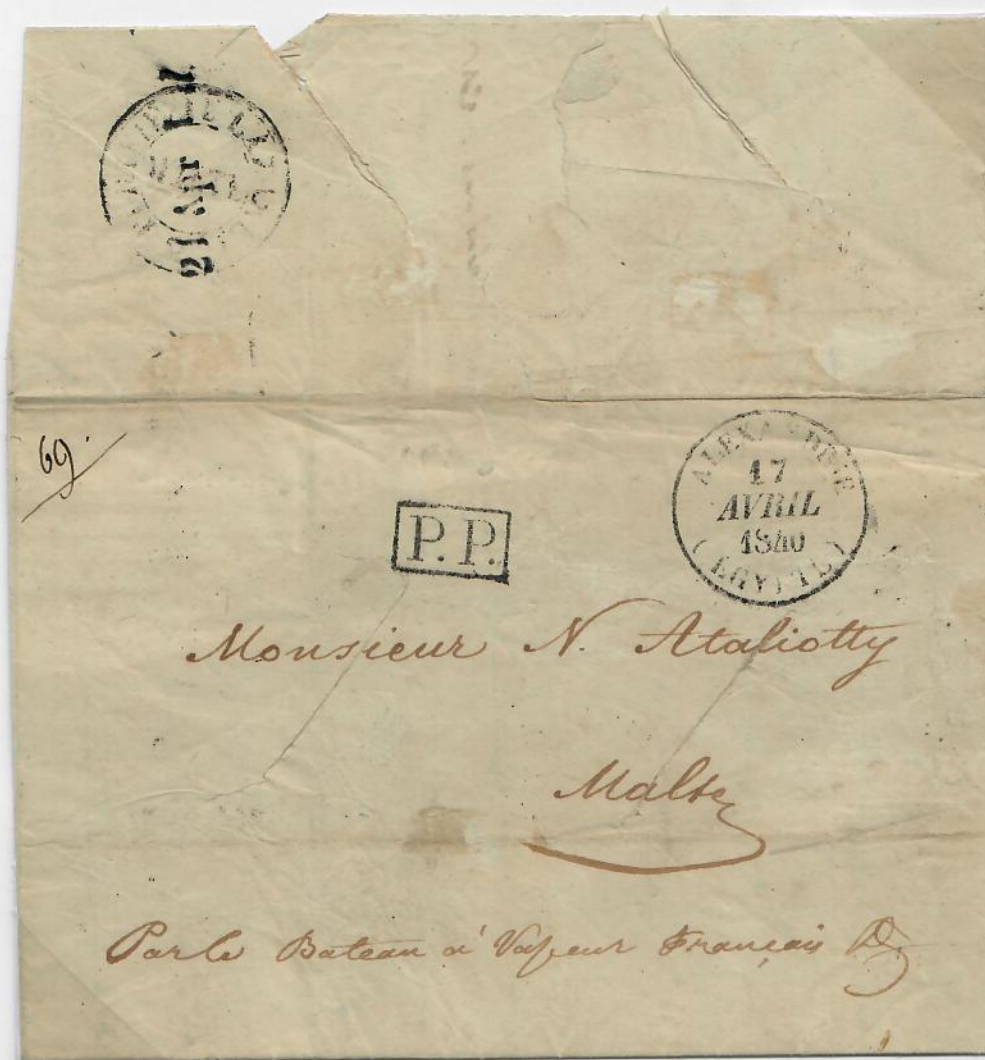 21 Apr
69.
P.P.
ALEXANDRIE
17
AVRIL
1840
(EGYPTE)
Monsieur N. Ataliotty
Malte
Par le Bateau à Vapeur Français